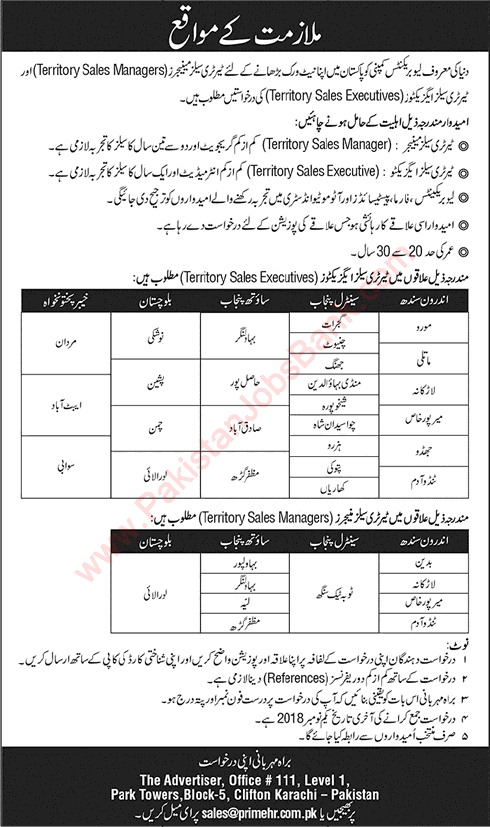 ملازمت کے مواقع
دنیا کی معروف لیوبریکنٹس کمپنی کو پاکستان میں اپنا نیٹ ورک بڑھانے کے لئے ٹیرٹری سیلز مینیجرز (Territory Sales Managers) اور
ٹیرٹری سیلز ایگزیکٹوز (Territory Sales Executives) کی درخواستیں مطلوب ہیں۔
امیدوار مندرجہ ذیل اہلیت کے حامل ہونے چاہئیں:
ٹیرٹری سیلز مینیجر : (Territory Sales Manager) کم از کم گریجویٹ اور دو سے تین سال کا سیلز کا تجربہ لازمی ہے۔
ٹیرٹری سیلز ایگزیکٹو : (Territory Sales Executive) کم از کم انٹرمیڈیٹ اور ایک سال کا سیلز کا تجربہ لازمی ہے۔
لیوبریکنٹس، فارما، پیسٹیسائڈز اور آٹوموٹیو انڈسٹری میں تجربہ رکھنے والے امیدواروں کو ترجیح دی جائیگی۔
امیدوار اسی علاقے کا رہائشی ہو جس علاقے کی پوزیشن کے لئے درخواست دے رہا ہے۔
عمر کی حد 20 سے 30 سال۔
مندرجہ ذیل علاقوں میں ٹیرٹری سیلز ایگزیکٹوز (Territory Sales Executives) مطلوب ہیں:
اندرون سندھ سینٹرل پنجاب ساؤتھ پنجاب بلوچستان خیبر پختونخواہ
مورو
ماتلی
لاڑکانہ
میرپور خاص
جھڈو
ٹنڈو آدم
گجرات
چنیوٹ
جھنگ
منڈی بہاؤالدین
شیخوپورہ
چوآ سیدان شاہ
ہزرو
پتوکی
کھاریاں
بہاولنگر
حاصل پور
صادق آباد
مظفر گڑھ
نوشکی
پشین
چمن
لورالائی
مردان
ایبٹ آباد
سوابی
مندرجہ ذیل علاقوں میں ٹیرٹری سیلز مینیجرز (Territory Sales Managers) مطلوب ہیں:
اندرون سندھ سینٹرل پنجاب ساؤتھ پنجاب بلوچستان
بدین
لاڑکانہ
میرپور خاص
ٹنڈو آدم
ٹوبہ ٹیک سنگھ
بہاولپور
بہاولنگر
لیّہ
مظفر گڑھ
لورالائی
نوٹ:
۱ درخواست دہندگان اپنی درخواست کے لفافہ پر اپنا علاقہ اور پوزیشن واضح کریں اور اپنی شناختی کارڈ کی کاپی کے ساتھ ارسال کریں۔
۲ درخواست کے ساتھ کم از کم دو ریفرنسز (References) دینا لازمی ہے۔
۳ براہ مہربانی اس بات کو یقینی بنائیں کہ آپ کی درخواست پر درست فون نمبر اور پتہ درج ہو۔
۴ درخواست جمع کرانے کی آخری تاریخ یکم نومبر 2018 ہے۔
۵ صرف منتخب اُمیدواروں سے رابطہ کیا جائے گا۔
براہ مہربانی اپنی درخواست
The Advertiser, Office # 111, Level 1,
Park Towers,Block-5, Clifton Karachi – Pakistan
پر بھیجیں یا sales@primehr.com.pk پر ای میل کریں۔
www.PakistanJobsBank.com